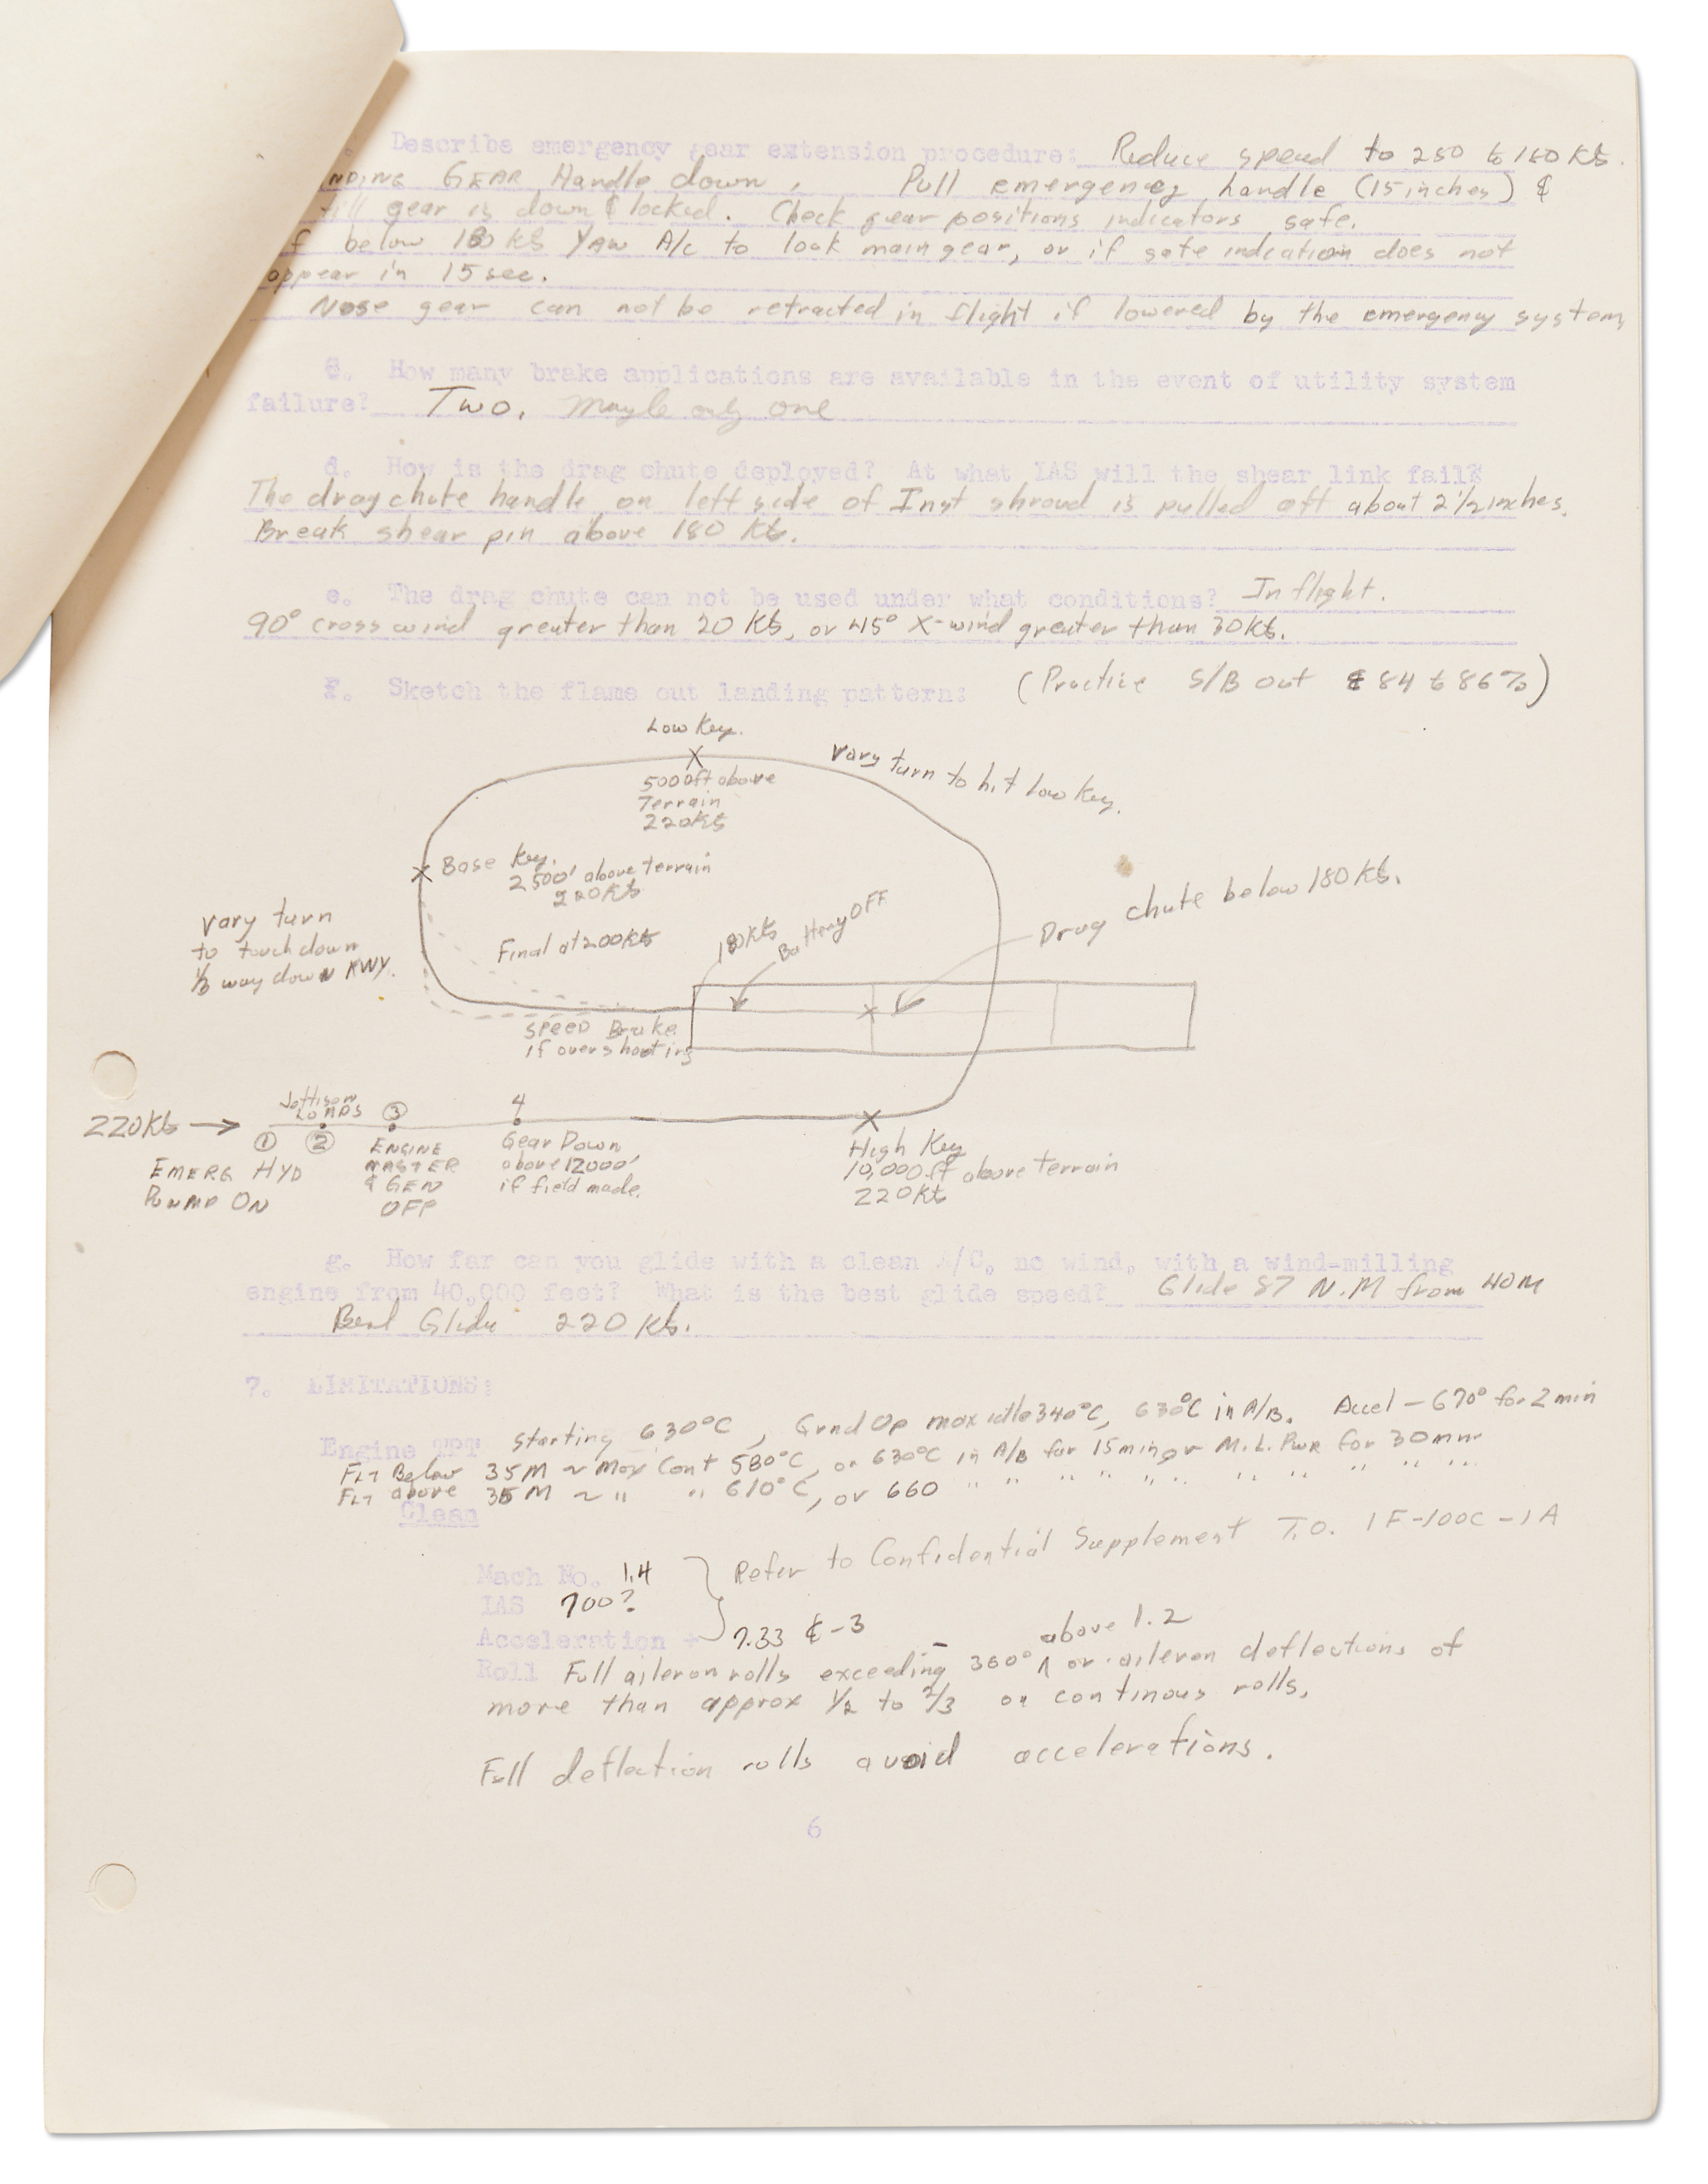 Describe emergency gear extension procedure: Reduce speed to 250 to 180 Kts.
NDING GEAR Handle down, Pull emergency handle (15 inches) &
till gear is down & locked. Check gear positions indicators safe.
f below 180 kts YAW A/c to lock main gear, or if safe indication does not
appear in 15 sec.
Nose gear can not be retracted in flight if lowered by the emergency system,
How many brake applications are available in the event of utility system
failure? Two. Maybe only one
d. How is the drag chute deployed? At what IAS will the shear link fail?
The drag chute handle, on left side of Inst shroud is pulled aft about 2 1/2 inches.
Break shear pin above 180 Kts.
e. The drag chute can not be used under what conditions? In flight.
90° cross wind greater than 20 Kts, or 45° X-wind greater than 30 Kts.
F. Sketch the flame out landing pattern: (Practice S/B out & 84 to 86%)
Low Key.
5000 ft above
Terrain
220 Kts
vary turn to hit Low Key.
Base Key.
2500' above terrain
220 Kts
vary turn
to touch down
1/3 way down RWY.
Final at 200 Kts
180 Kts
Battery OFF
Drag chute below 180 Kts.
SPEED Brake
if overshooting
220 Kts →
① ② ③ 4
EMERG HYD
PUMP ON
Jettison
LOADS
ENGINE
MASTER
& GEN
OFF
Gear Down
above 12000'
if field made.
High Key
10,000 ft above terrain
220 Kts
g. How far can you glide with a clean A/C, no wind, with a wind-milling
engine from 40,000 feet? What is the best glide speed? Glide 87 N.M from 40M
Best Glide 220 Kts.
7. LIMITATIONS:
Engine TPT starting 630°C, Grnd Op max idle 340°C, 630°C in A/B. Accel - 670° for 2 min
FLT Below 35M ~ Max Cont 580°C, or 630°C in A/B for 15 min or Mil. Pwr for 30 min
FLT above 35M ~ " " 610°C, or 660 " " " " " " " " " " "
Clean
Mach No. 1.4
IAS 700?
Refer to Confidential Supplement T.O. 1F-100C-1A
Acceleration + 7.33 & -3
Roll Full aileron rolls exceeding 360° ^ above 1.2 or aileron deflections of
more than approx 1/2 to 2/3 on continous rolls.
Full deflection rolls avoid accelerations.
6